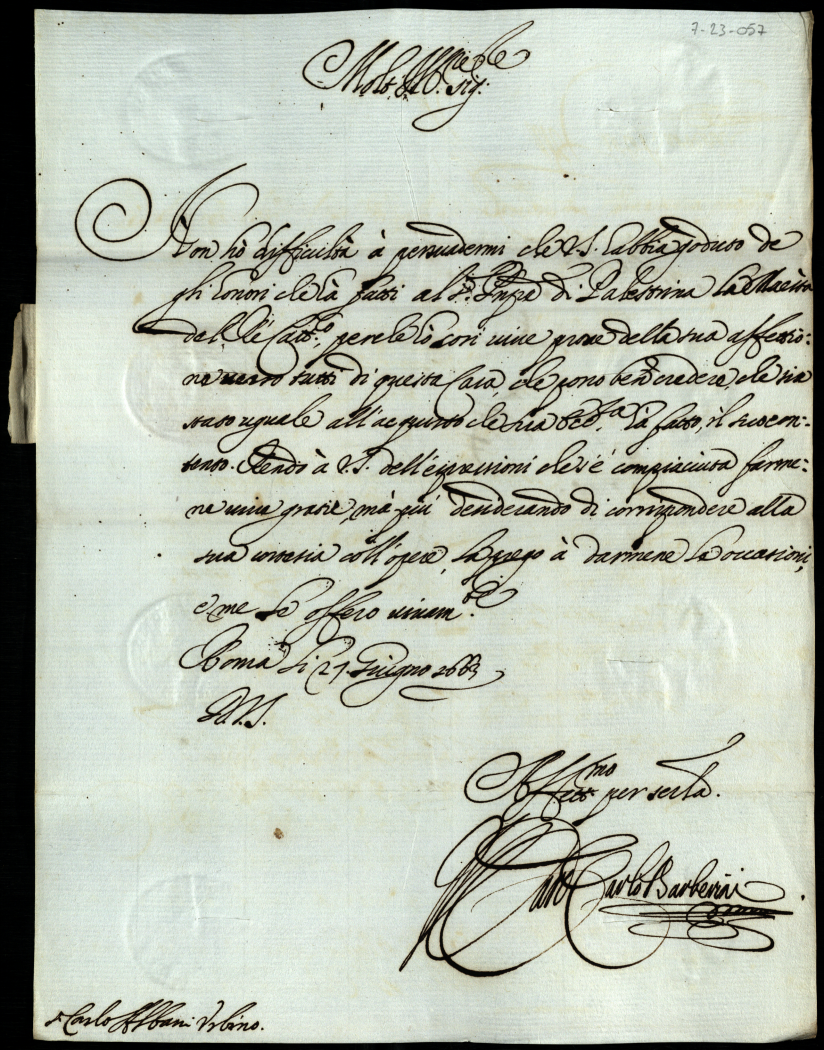 7-23-057
Molt' Ill.re sig.re
Non hò difficultà à persuadermi che V.S. habbia goduto de
gli honori che hà fatti al S.r Prñpe di Palestrina la Maestà
del Rè Catt.co, perche hò così vive prove della sua affettio=
ne verso tutti di questa Casa, che posso ben credere, che sia
stato uguale all'acquisto che sua Ecc.za hà fatto, il suo con=
tento. Rendo à V.S. dell'espressioni che s'è compiaciuta farme=
ne vive gratie, mà più desiderando di corrispondere alla
sua cortesia coll'opere, la prego à darmene le occasioni,
e me le offero vivam.te
Roma li 27. Giugno 166
D.V.S.
Aff.mo per serla.
Il Card. Carlo Barberini
S.r Carlo Albani Urbino.